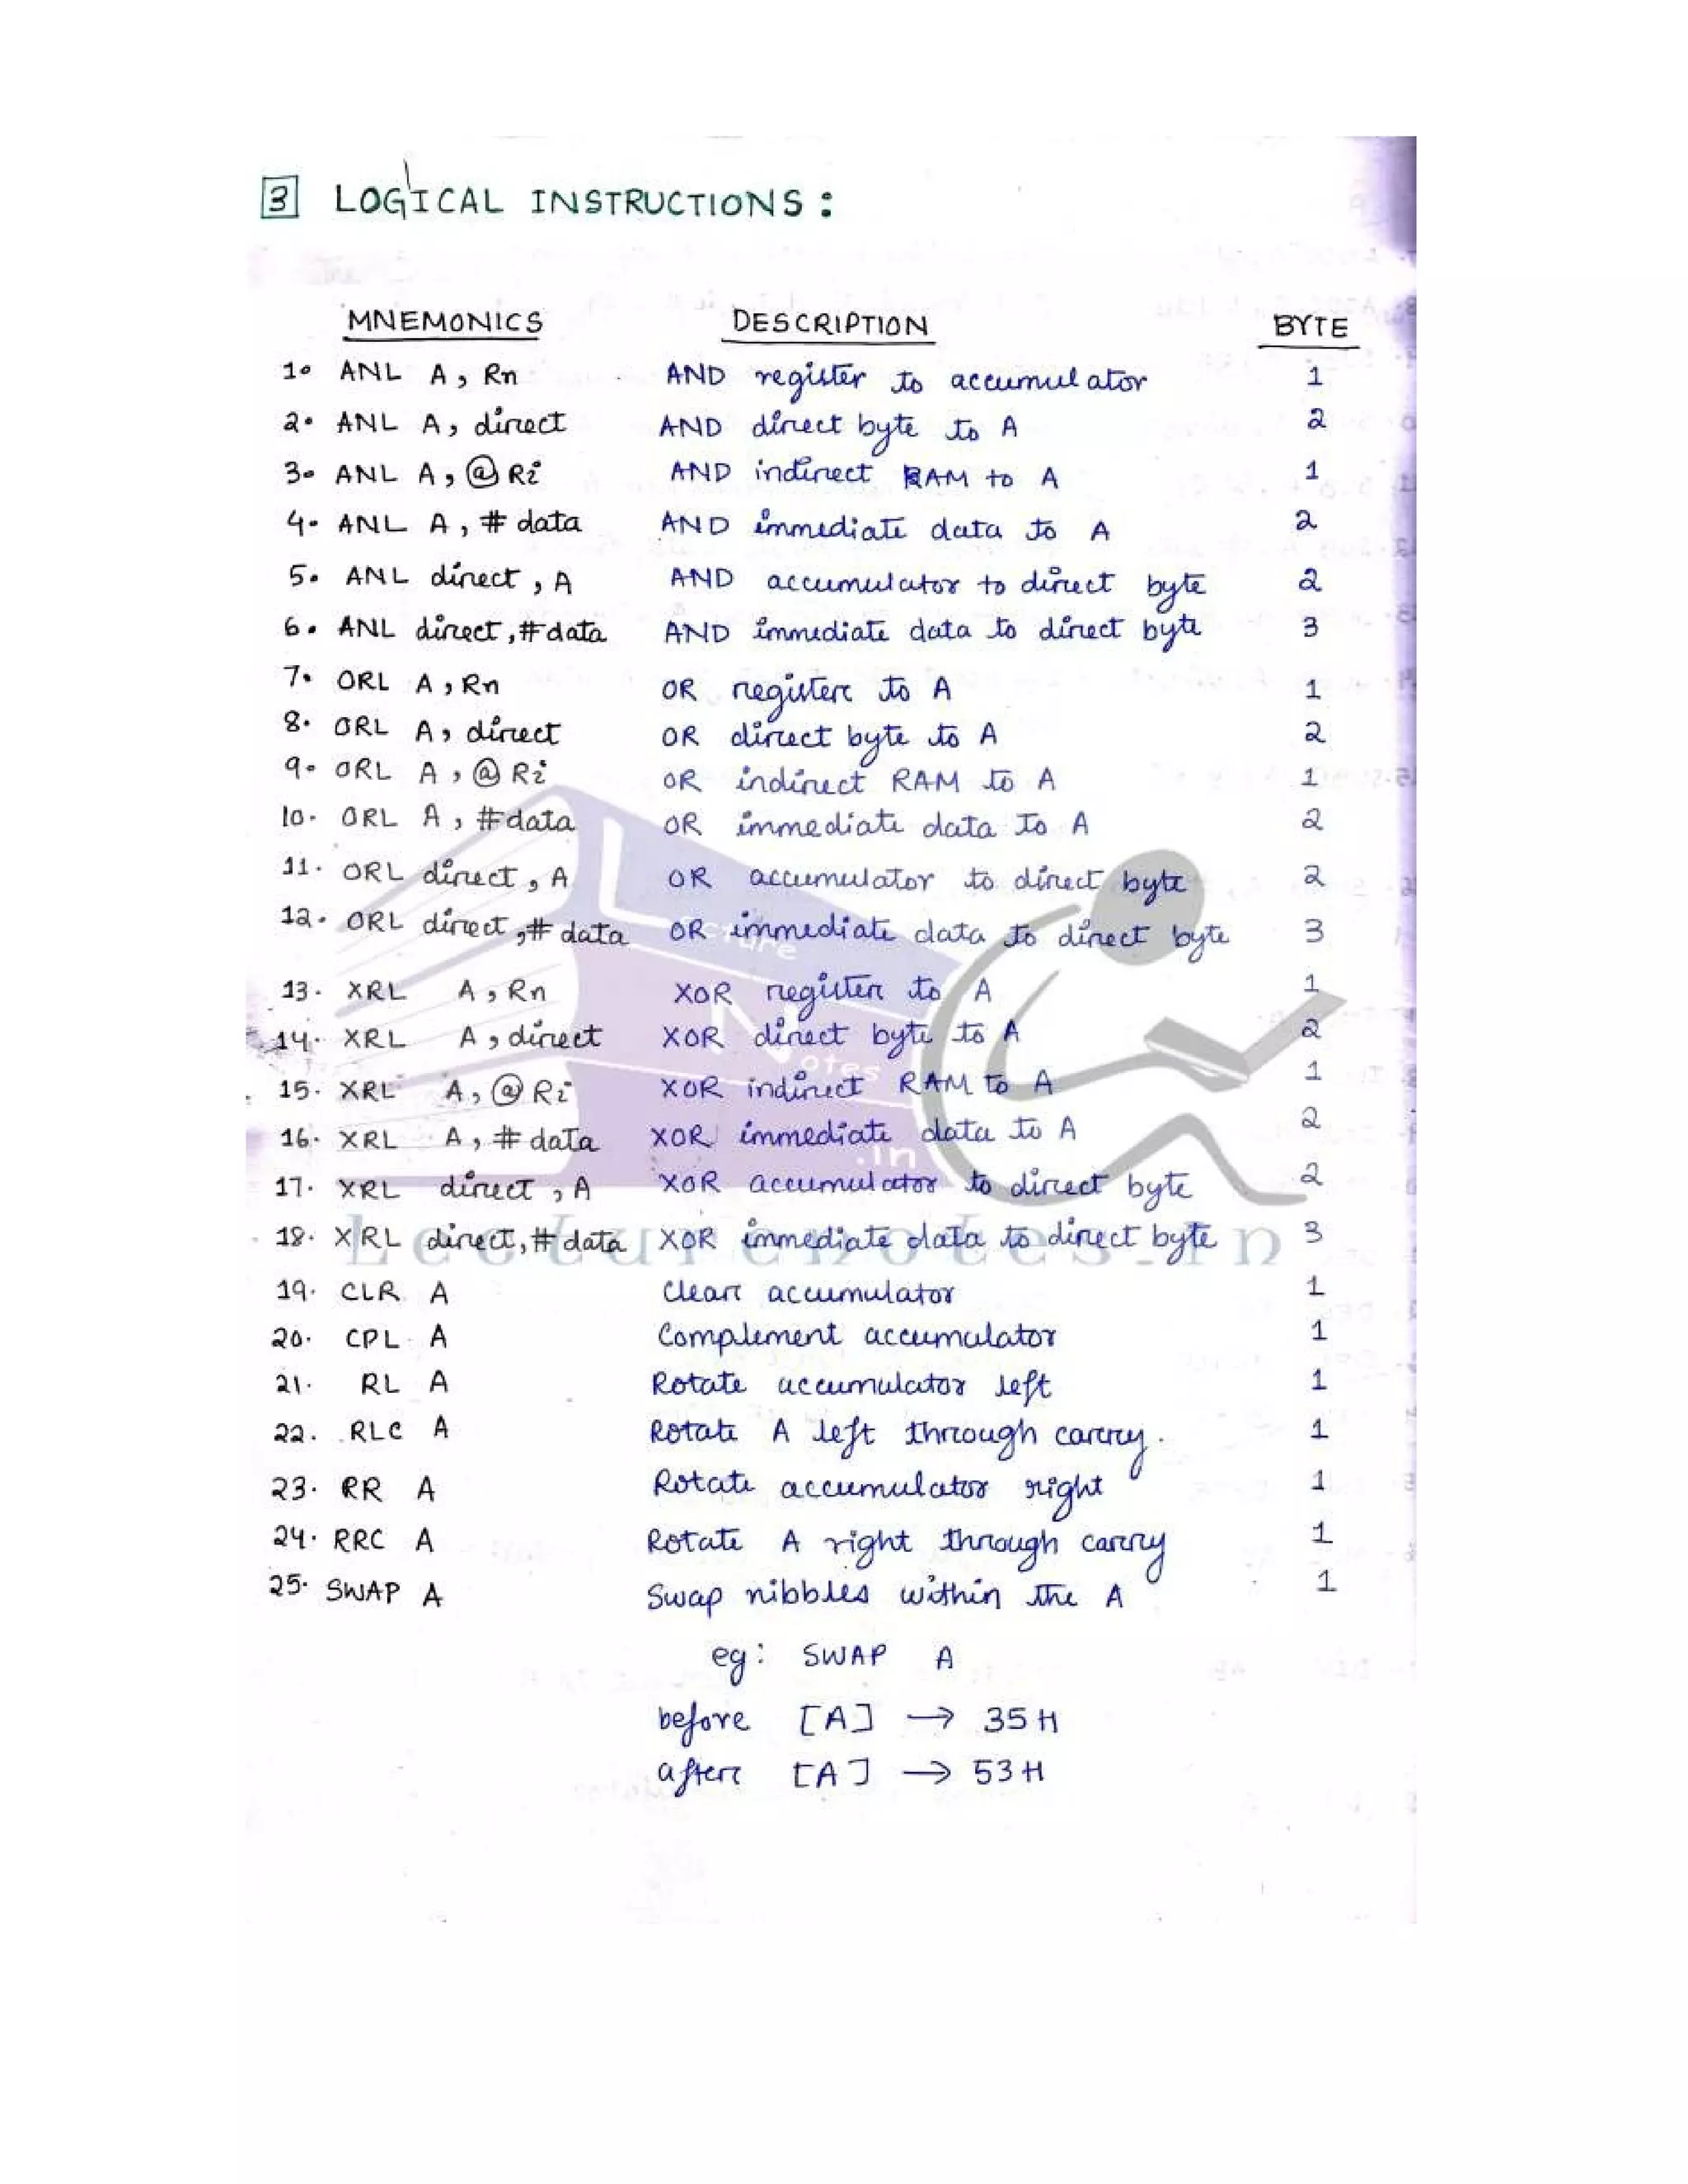 3 LOGICAL INSTRUCTIONS :
MNEMONICS DESCRIPTION BYTE
1. ANL A, Rn AND register to accumulator 1
2. ANL A, direct AND direct byte to A 2
3. ANL A, @Ri AND indirect RAM to A 1
4. ANL A, # data AND immediate data to A 2
5. ANL direct, A AND accumulator to direct byte 2
6. ANL direct, #data AND immediate data to direct byte 3
7. ORL A, Rn OR register to A 1
8. ORL A, direct OR direct byte to A 2
9. ORL A, @Ri OR indirect RAM to A 1
10. ORL A, #data OR immediate data to A 2
11. ORL direct, A OR accumulator to direct byte 2
12. ORL direct, # data OR immediate data to direct byte 3
13. XRL A, Rn XOR register to A 1
14. XRL A, direct XOR direct byte to A 2
15. XRL A, @Ri XOR indirect RAM to A 1
16. XRL A, # data XOR immediate data to A 2
17. XRL direct, A XOR accumulator to direct byte 2
18. XRL direct, # data XOR immediate data to direct byte 3
19. CLR A Clear accumulator 1
20. CPL A Complement accumulator 1
21. RL A Rotate accumulator left 1
22. RLC A Rotate A left through carry. 1
23. RR A Rotate accumulator right 1
24. RRC A Rotate A right through carry 1
25. SWAP A Swap nibbles within the A 1
eg: SWAP A
before [A] → 35H
after [A] → 53H
Lecture Notes .in
Lecturenotes.in